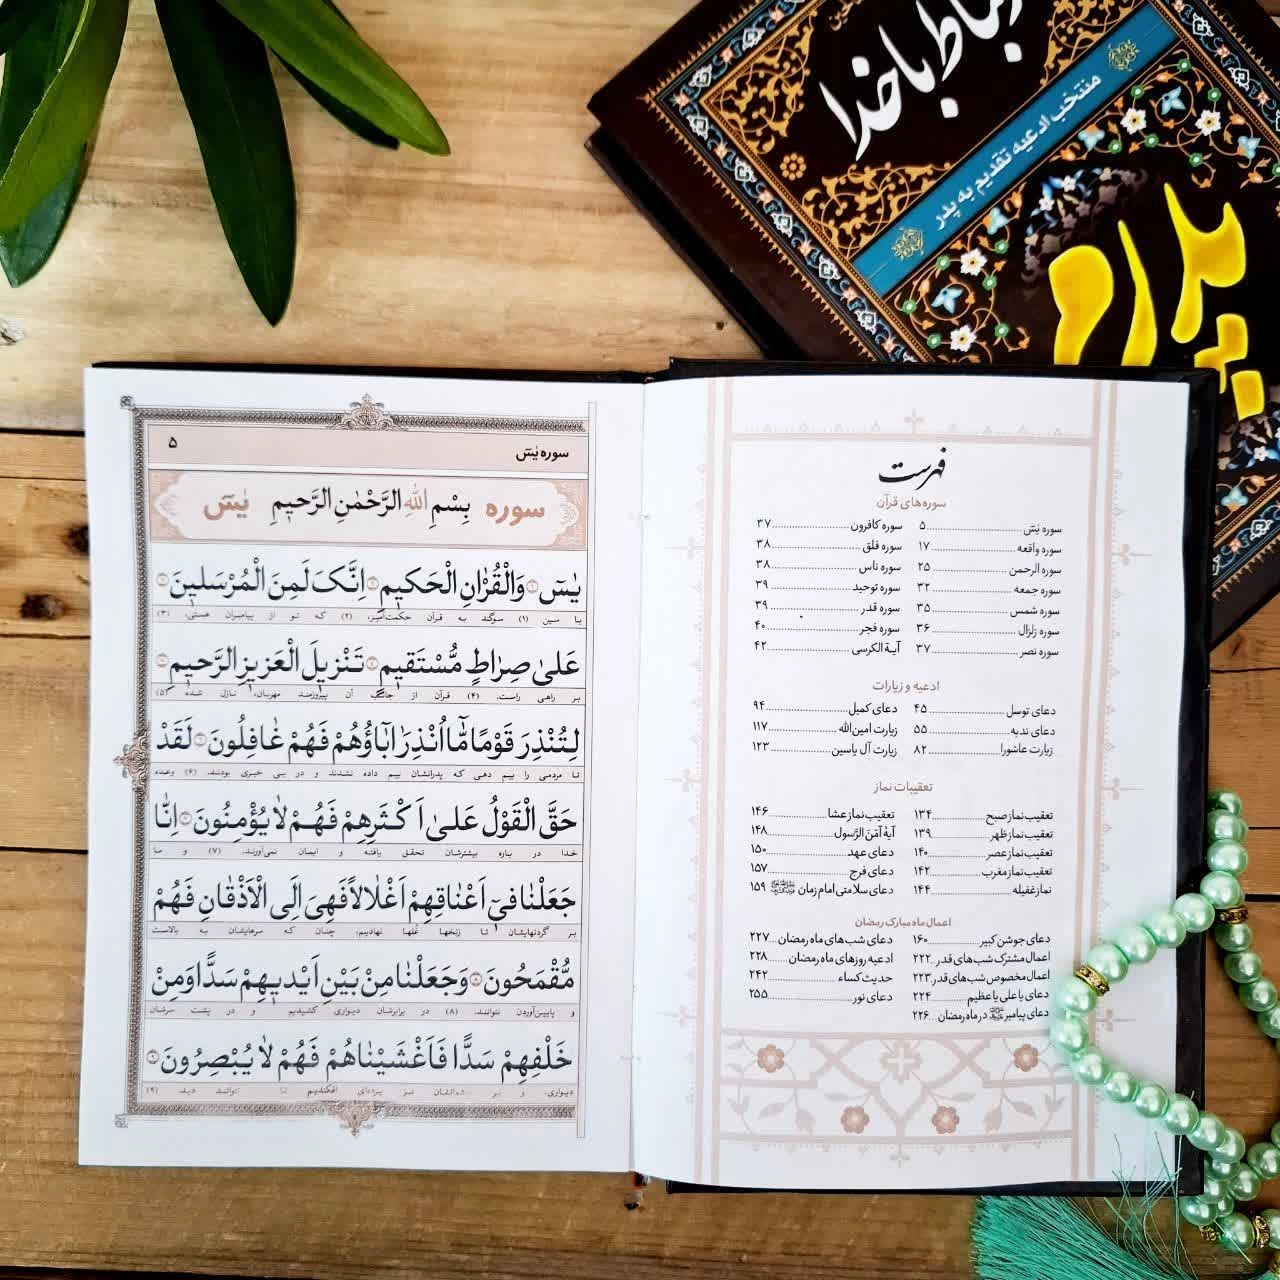 ارتباط با خدا
منتخب ادعیه تقدیم به پدر
پدرم
فهرست
سوره‌های قرآن
سوره یٰسٓ ۵
سوره واقعه ۱۷
سوره الرحمن ۲۵
سوره جمعه ۳۲
سوره شمس ۳۵
سوره زلزال ۳۶
سوره نصر ۳۷
سوره کافرون ۳۷
سوره فلق ۳۸
سوره ناس ۳۸
سوره توحید ۳۹
سوره قدر ۳۹
سوره فجر ۴۰
آیة الکرسی ۴۲
ادعیه و زیارات
دعای توسل ۴۵
دعای ندبه ۵۵
زیارت عاشورا ۸۲
دعای کمیل ۹۴
زیارت امین‌الله ۱۱۷
زیارت آل یاسین ۱۲۳
تعقیبات نماز
تعقیب نماز صبح ۱۳۴
تعقیب نماز ظهر ۱۳۹
تعقیب نماز عصر ۱۴۰
تعقیب نماز مغرب ۱۴۲
نماز غفیله ۱۴۴
تعقیب نماز عشا ۱۴۶
آیهٔ آمَنَ الرَّسول ۱۴۸
دعای عهد ۱۵۰
دعای فرج ۱۵۷
دعای سلامتی امام زمان ۱۵۹
اعمال ماه مبارک رمضان
دعای جوشن کبیر ۱۶۰
اعمال مشترک شب‌های قدر ۲۲۲
اعمال مخصوص شب‌های قدر ۲۲۳
دعای یا علی یا عظیم ۲۲۴
دعای پیامبر در ماه رمضان ۲۲۶
دعای شب‌های ماه رمضان ۲۲۷
ادعیه روزهای ماه رمضان ۲۲۸
حدیث کساء ۲۴۲
دعای نور ۲۵۵
سوره یٰسٓ ۵
سوره بِسْمِ اللّٰهِ الرَّحْمٰنِ الرَّحیمِ یٰسٓ
یٰسٓ ﴿۱﴾ وَالْقُرْاٰنِ الْحَکیمِ ﴿۲﴾ اِنَّکَ لَمِنَ الْمُرْسَلینَ ﴿۳﴾
یا سین (۱) سوگند به قرآن حکمت‌آمیز، (۲) که تو از پیامبران هستی، (۳)
عَلیٰ صِرٰاطٍ مُسْتَقیمٍ ﴿۴﴾ تَنْزیلَ الْعَزیزِ الرَّحیمِ ﴿۵﴾
بر راهی راست. (۴) قرآن از جانب آن پیروزمند مهربان، نازل شده (۵)
لِتُنْذِرَ قَوْمًا مٰٓا اُنْذِرَ اٰبٰاؤُهُمْ فَهُمْ غٰافِلُونَ ﴿۶﴾ لَقَدْ
تا مردمی را بیم دهی که پدرانشان بیم داده نشدند و در بی خبری بودند. (۶) وعده
حَقَّ الْقَوْلُ عَلیٰ اَکْثَرِهِمْ فَهُمْ لٰا یُؤْمِنُونَ ﴿۷﴾ اِنّٰا
خدا در باره بیشترشان تحقق یافته و ایمان نمی‌آورند. (۷) و ما
جَعَلْنٰا فیٓ اَعْنٰاقِهِمْ اَغْلٰالًا فَهِیَ اِلَی الْاَذْقٰانِ فَهُمْ
بر گردنهایشان تا زنخها غلها نهادیم، چنان که سرهایشان به بالاست
مُقْمَحُونَ ﴿۸﴾ وَجَعَلْنٰا مِنْ بَیْنِ اَیْدیهِمْ سَدًّا وَمِنْ
و پایین‌آوردن نتوانند. (۸) در برابرشان دیواری کشیدیم و در پشت سرشان
خَلْفِهِمْ سَدًّا فَاَغْشَیْنٰاهُمْ فَهُمْ لٰا یُبْصِرُونَ ﴿۹﴾
دیواری. و بر چشمانشان نیز پرده‌ای افکندیم تا نتوانند دید. (۹)